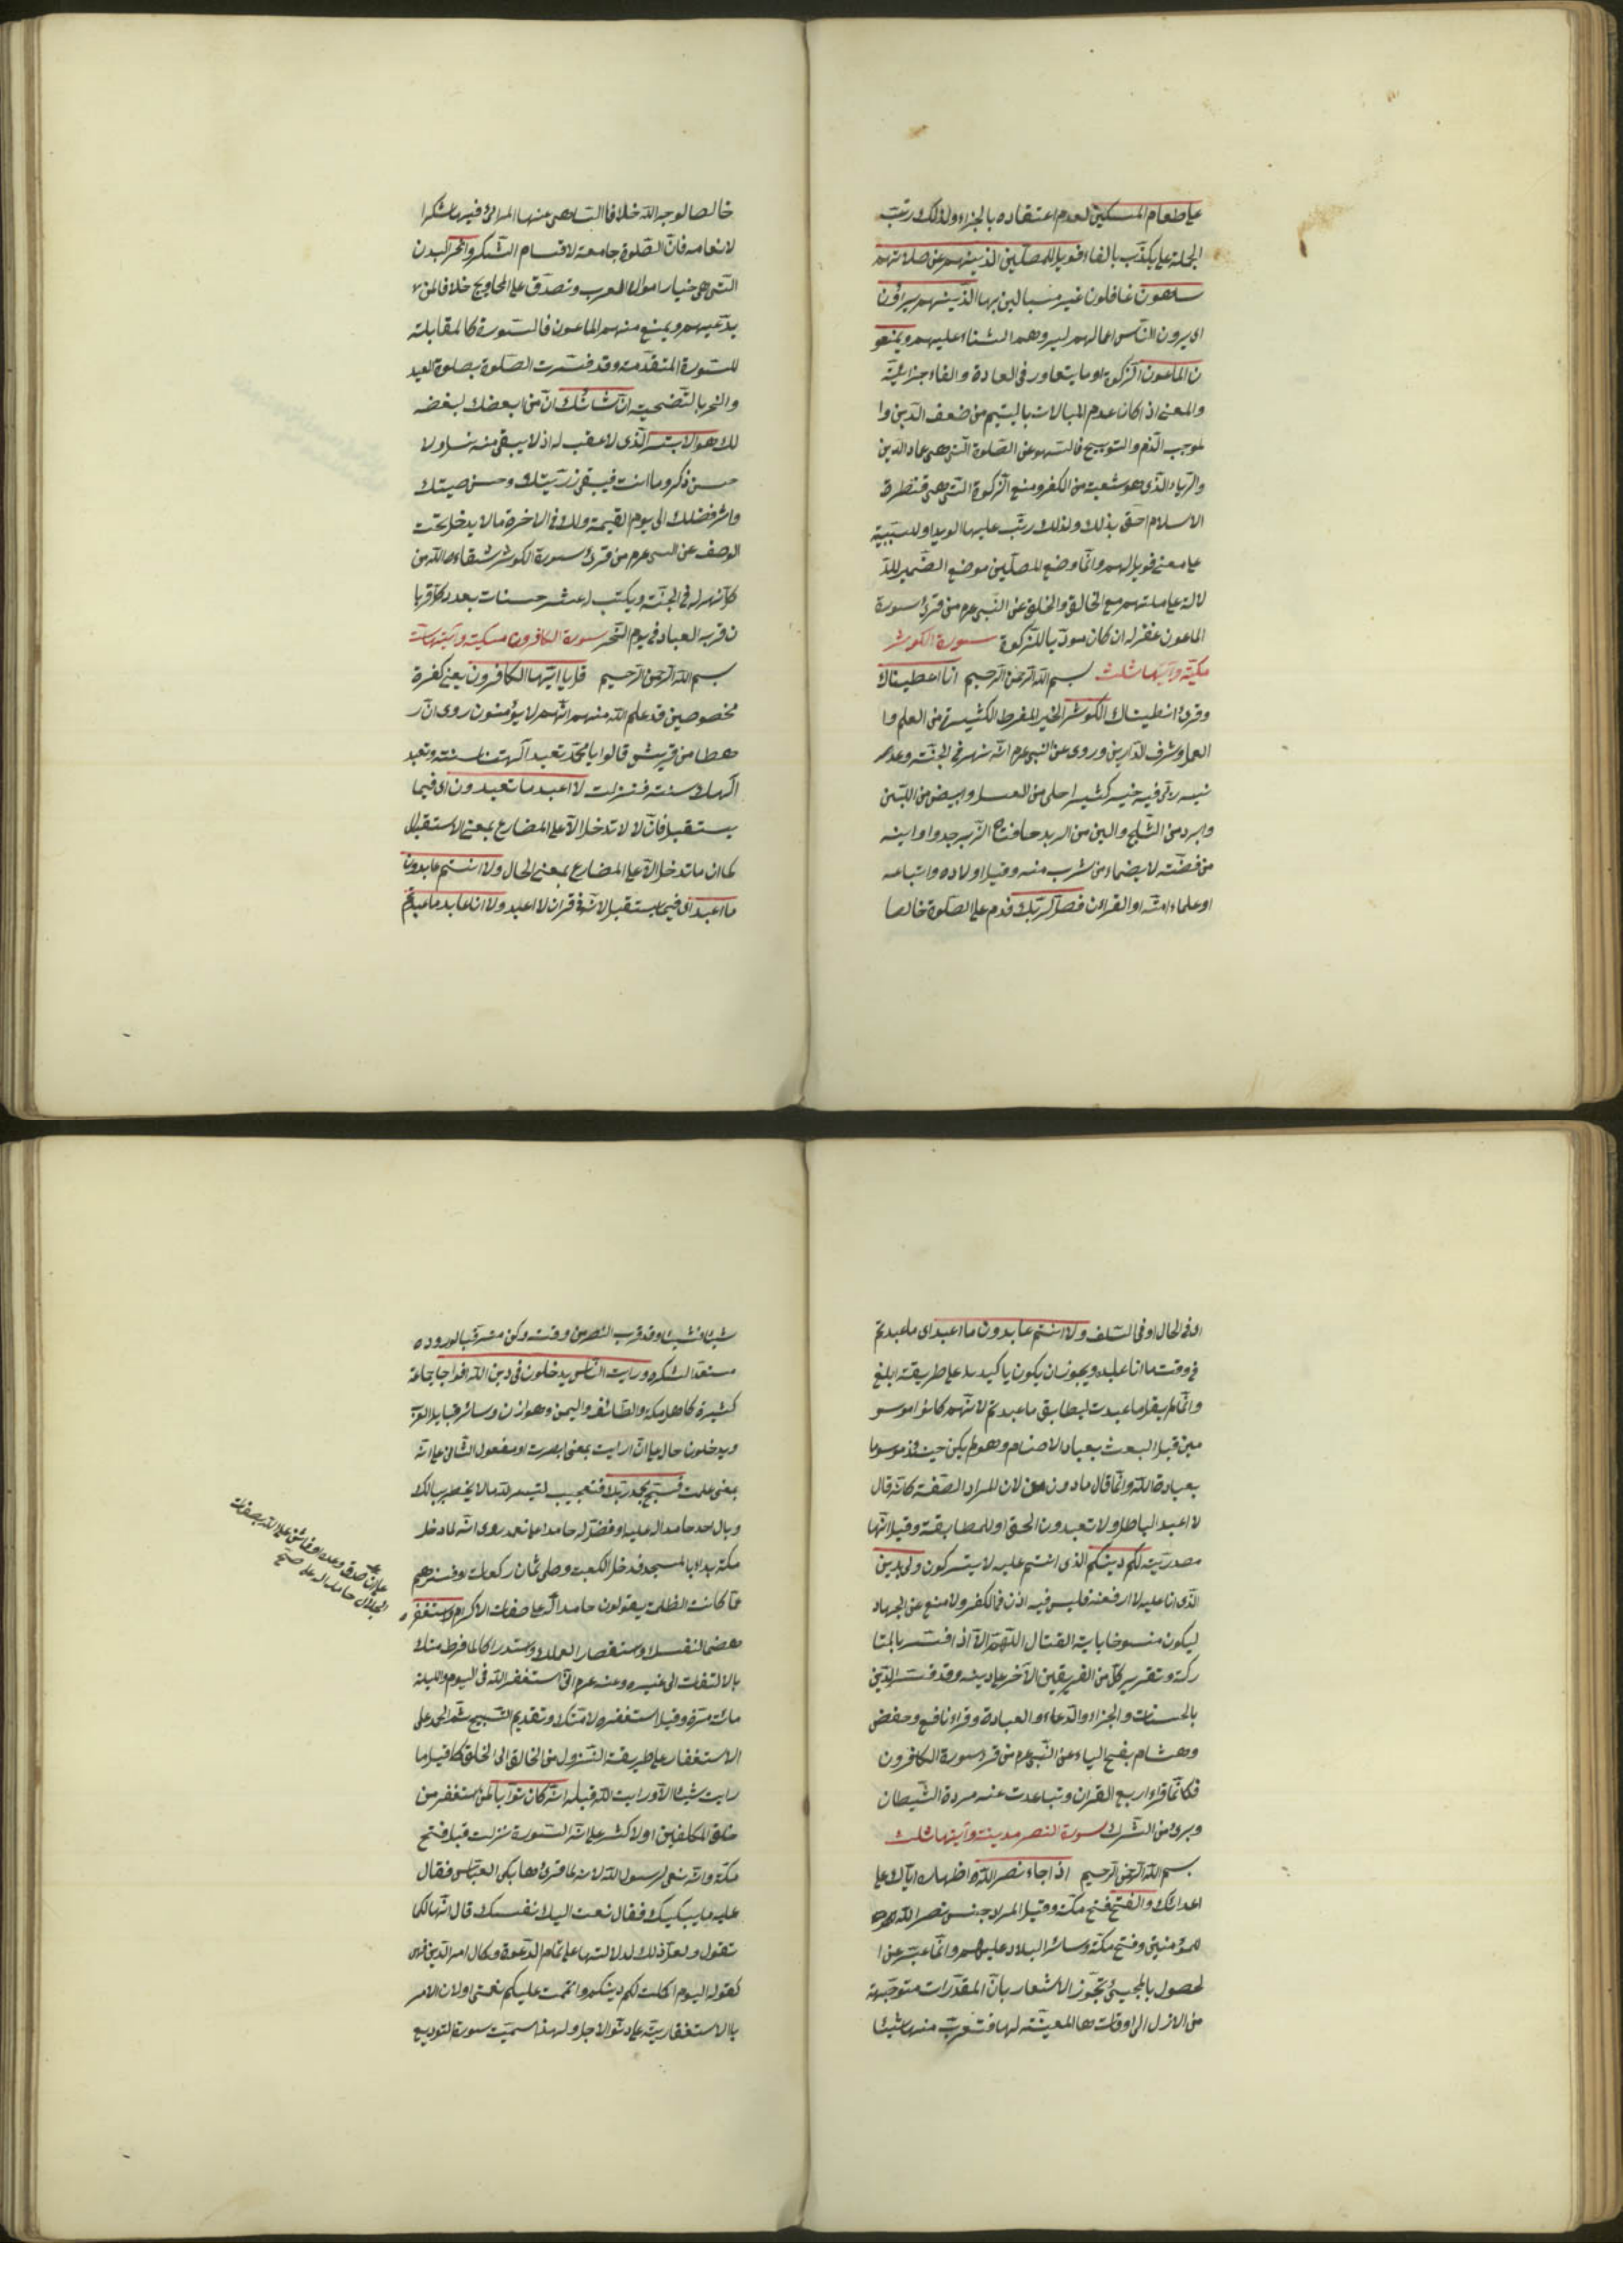 على طعام المسكين لعدم اعتقاده بالجزاء ولذلك رتب
الجملة على يكذب بالفاء فويل للمصلين الذينهم عن صلاتهم
ساهون غافلون غير مبالين بها الذينهم يراؤن
اى يرون الناس اعمالهم ليروهم الثناء عليهم ويمنعو
ن الماعون الزكوة او ما يتعاور فى العادة والفاء جزائية
والمعنى اذا كان عدم المبالات باليتيم من ضعف الدين وا
لموجب الذم والتوبيخ فالسهو عن الصلوة التى هى عماد الدين
والرياء الذى هو شعبة من الكفر ومنع الزكوة التى هى قنطرة
الاسلام احق بذلك ولذلك رتب عليها الويل او للسببية
على معنى فويل لهم وانما وضع المصلين موضع الضمير للد
لالة على معاملتهم مع الخالق والخلق عن النبى عرم من قرئ سورة
الماعون غفر له ان كان مودّيا للزكوة سورة الكوثر
مكية وآيتها ثلث بسم الله الرحمن الرحيم انا اعطيناك
وقرئ انطيناك الكوثر الخير المفرط الكثيرة من العلم وا
لعمل وشرف الدارين وروى عن النبى عرم انه نهر فى الجنة وعد
نيه ربى فيه خير كثير احلى من العسل وابيض من اللبن
وابرد من الثلج والين من الزبد حافتاه الزبرجد واوانيه
من فضة لا يضماء من شرب منه وقيل اولاده واتباعه
او علماء امته او القران فصل لربك فدم على الصلوة خالصا
خالصا لوجه الله خلافا الساهى عنها المرائى فيها شكرا
لانعامه فان الصلوة جامعة لاقسام الشكر وانحر البدن
التى هى خيار اموال العرب وتصدق على المحاويج خلافا لمن
يدعهم ويمنع منهم الماعون فالسورة كالمقابلة
للسورة المتقدمة وقد فسرت الصلوة بصلوة العيد
والنحر بالتضحية ان شانئك ان من ابعضك لبغضه
لك هو الابتر الذى لا عقب له اذ لا يبقى منه نسل ولا
حسن ذكر وما انت فيبقى زريتك وحسن صيتك
واثر فضلك الى يوم القيمة ولك فى الاخرة ما لا يدخل تحت
الوصف عن النبى عرم من قرئ سورة الكوثر سقاه الله من
كل نهر له فى الجنة ويكتب له عشر حسنات بعدد كل قربا
ن قربه العباد فى يوم النحر سورة الكافرون مكية وآيتها ست
بسم الله الرحمن الرحيم قل يا ايها الكافرون يعنى كفرة
مخصوصين قد علم الله منهم انهم لا يؤمنون روى ان ر
هطا من قريش قالوا يا محمد تعبد آلهتنا سنة ونعبد
آلهك سنة فنزلت لا اعبد ما تعبدون اى فيما
يستقبل فان لا لا تدخل الا على المضارع بمعنى الاستقبال
كما ان ما تدخل الا على المضارع بمعنى الحال ولا انتم عابدون
ما اعبد اى فيما يستقبل لانه فى قران لا اعبد ولا انا عابد ما عبدتم
اى فى الحال او فى السلف ولا انتم عابدون ما اعبد اى ما عبدتم
فى وقت ما انا عابده ويجوز ان يكون تاكيدين على طريقة ابلغ
وانما لم يقل ما عبدت ليطابق ما عبدتم لانهم كانوا موسو
مين قبل البعث بعبادة الاصنام وهو لم يكن حينئذ موسوما
بعبادة الله وانما قال ما دون من لان المراد الصفة كانه قال
لا اعبد الباطل ولا تعبدون الحق او للمطابقة وقيل انها
مصدرية لكم دينكم الذى انتم عليه لا تتركون ولى دين
الذى انا عليه لا ارفضه فليس فيه اذن فى الكفر ولا منع عن الجهاد
ليكون منسوخا باية القتال اللهم الا اذا فسر بالمتا
ركة وتقرير كل من الفريقين الاخر على دينه وقد فسر الدين
بالحسنات والجزاء والدعاء والعبادة وقراء نافع وحفص
وهشام بفتح الياء عن النبى عرم من قرء سورة الكافرون
فكانما قراء ربع القران وتباعدت عنه مردة الشيطان
وبرئ من الشرك سورة النصر مدينة وآيتها ثلث
بسم الله الرحمن الرحيم اذا جاء نصر الله اظهاره اياك على
اعدائك والفتح فتح مكة وقيل المراد جنس نصر الله
للمؤمنين وفتح مكة وسائر البلاد عليهم وانما عبر عن ا
لحصول بالمجيئ تجوز الاشعار بان المقدرات متوجهة
من الازل الى اوقاتها المعينة لها فتعرب منها شيئا
شيئا فشيئا وقد قرب النصر من وقته وكن مترقبا لوروده
مستعدا لشكره ورايت الناس يدخلون فى دين الله افواجا جماعة
كثيرة كاهل مكة والطائف واليمن وهوازن وسائر قبايل العرب
ويدخلون حال على ان رايت بمعنى ابصرت او مفعول الثانى على انه
بمعنى علمت فسبح بحمد ربك فتعجب لتيسر الله ما لا يخطر ببالك
وبال احد حامدا له عليه او فصل له حامدا على نعمه روى انه لما دخل
مكة بداء بالمسجد فدخل الكعبة وصلى ثمان ركعات او فنزهه
عما كانت الظلمة يقولون حامدا له على صفات الاكرام واستغفره
هضما لنفسك واستقصارا لعملك واستدراكا لما فرط منك
بالالتفات الى غيره وعنه عرم انى استغفر الله فى اليوم والليلة
مائة مرة وقيل استغفره لامتك وتقديم التسبيح ثم الحمد على
الاستغفار على طريقة النزول من الخالق الى الخلق كما قيل ما
رايت شيئا الا ورايت الله قبله انه كان توابا لمن استغفر من
خلق المكلفين والاكثر على ان السورة نزلت قبل فتح
مكة وانه نعى لرسول الله لانه لما قرئها بكى العباس فقال
عليه ما يبكيك فقال نعيت اليك نفسك قال انها لكما
تقول ولعل ذلك لدلالتها على تمام الدعوة وكمال امر الدين فهى
كقوله اليوم اكملت لكم دينكم واتممت عليكم نعمتى او لان الامر
بالاستغفار ينبه على دنو الاجل ولهذا سميت سورة التوديع
على ان صدق وعده او فاثنى على الله بصفات
الجلال حامدا له على صح